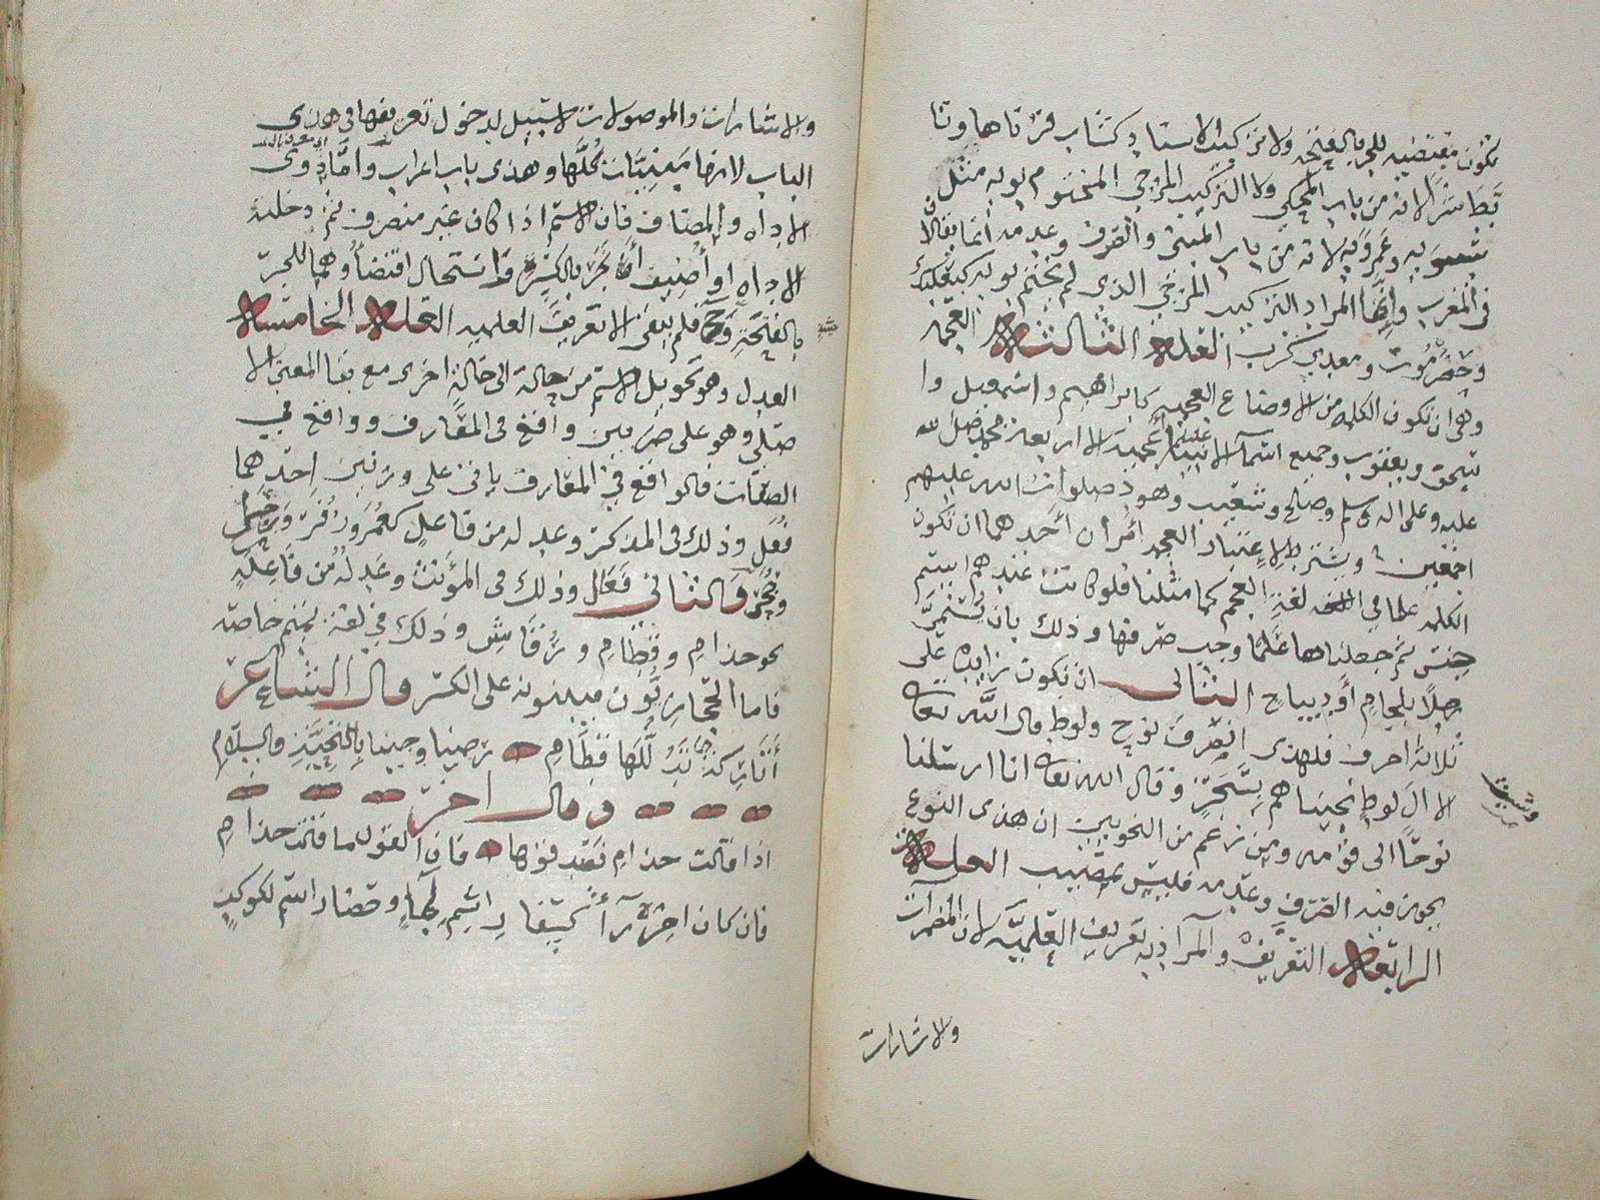 تكون مقتضيه للجر بالفتحه ولا تركيب الاسناد كشاب قرناها وتا
بط شرا لانه من باب المحكي ولا التركيب المزجي المختوم بويه مثل
سيبويه وعمرويه لانه من باب المبني والصرف وعدمه انما يقالان
في المعرب وانما المراد التركيب المزجي الذي لم يختم بويه كبعلبك
وحضرموت ومعدي كرب العلة الثالثة العجمة
وهي ان تكون الكلمه من الاوضاع العجميه كابراهيم واسمعيل وا
سحق ويعقوب وجميع اسماء الانبياء عجميه الا اربعة محمد صلى الله
عليه وعلى اله وسلم وصالح وشعيب وهود صلوات الله عليهم
اجمعين ويشترط لاعتبار العجمه امران احدهما ان تكون
الكلمه علما في لغة العجم كما مثلنا فلو كانت عندهم اسم
جنس ثم جعلناها علما وجب صرفها وذلك بان تسمي
رجلا بلجام او ديباج الثاني ان تكون زايده على
ثلاثة احرف فلهذى انصرف نوح ولوط قال الله تعالى
الا ال لوط نجيناهم بسحر وقال الله تعالى انا ارسلنا
نوحا الى قومه ومن زعم من النحويين ان هذى النوع
يجوز فيه الصرف وعدمه فليس بمصيب العلة
الرابعة التعريف والمراد به تعريف العلمية لان المضمرات
والاشارات
والاشارات والموصولات لا سبيل لدخول تعريفها في هذى
الباب لانها مبنيات كلها وهذى باب اعراب واما ذوى
الاداه والمضاف فان الاسم اذا كان غير منصرف ثم دخلته
الاداه او اضيف انجر بالكسره فاستحال اقتضاؤهما للجر
بالفتحة وح فلم يبقى الا تعريف العلميه العلة الخامسة
العدل وهو تحويل الاسم من حالة الى حالة اخرى مع بقا المعنى الا
صلي وهو على ضربين واقع في المعارف وواقع في
الصفات فالواقع في المعارف ياتي على وزنين احدهما
فعل وذلك في المذكر وعدله من فاعل كعمر وزفر وزحل
وجمح والثاني فعال وذلك في المؤنث وعدله من فاعلة
نحو حذام وقطام ورقاش وذلك في لغة تميم خاصه
فاما الحجازيون فيبنونه على الكسر قال الشاعر
اتاركة تدللها قطام رضينا بالتحية والسلام
وقال اخر
اذا قالت حذام فصدقوها فان القول ما قالت حذام
فان كان اخره را كسفار اسم لما وحضار اسم لكوكب